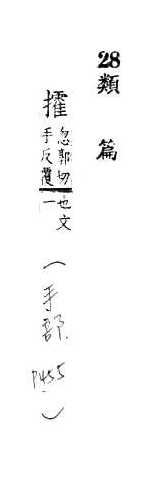 28 類 篇
攉 忽郭切手反覆也文一 (手部 P455)